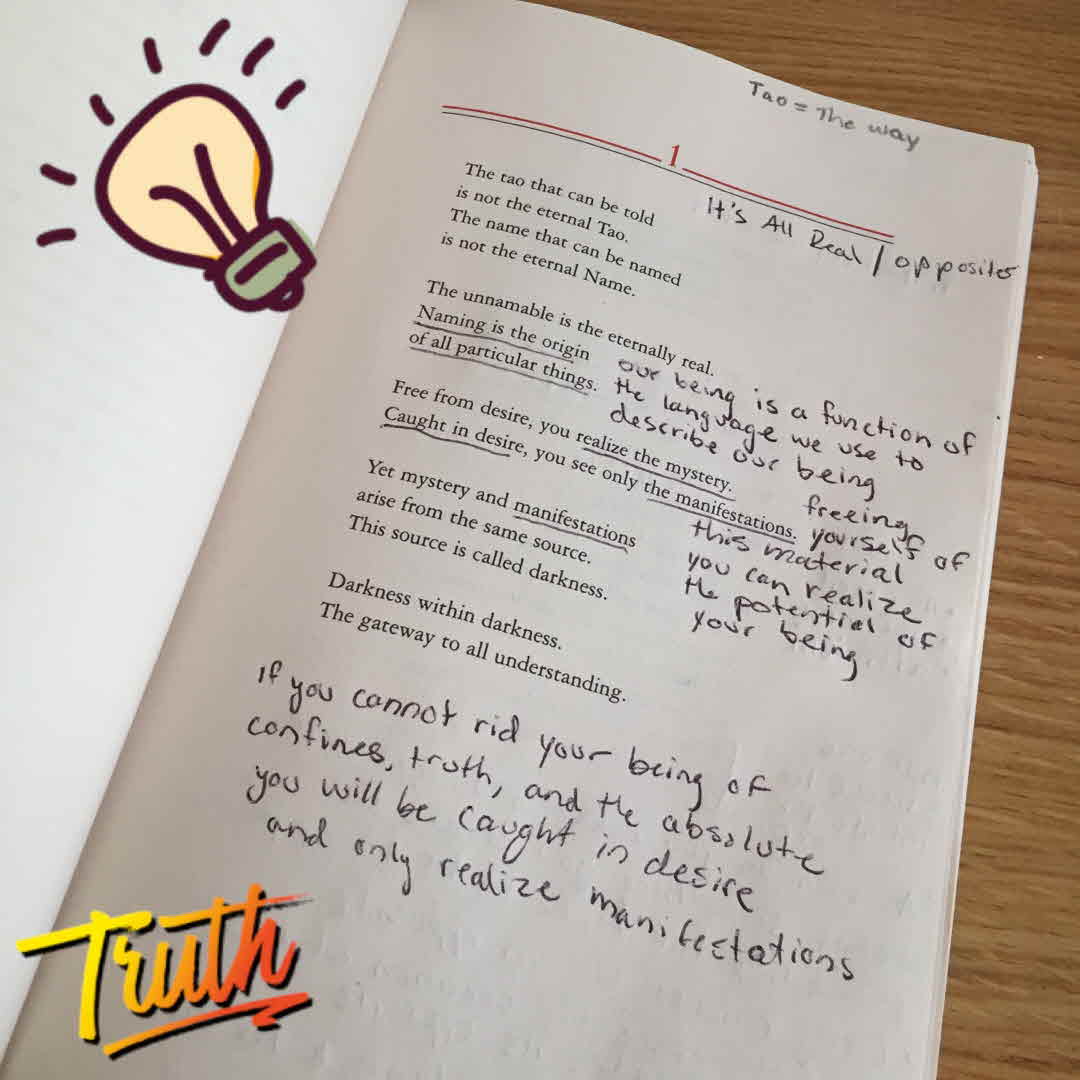 Tao = The way
1
It's All Real / opposites
The tao that can be told
is not the eternal Tao.
The name that can be named
is not the eternal Name.
The unnamable is the eternally real.
Naming is the origin
of all particular things.
our being is a function of
the language we use to
describe our being
Free from desire, you realize the mystery.
Caught in desire, you see only the manifestations.
freeing
yourself of
this material
you can realize
the potential of
your being
Yet mystery and manifestations
arise from the same source.
This source is called darkness.
Darkness within darkness.
The gateway to all understanding.
If you cannot rid your being of
confines, truth, and the absolute
you will be caught in desire
and only realize manifestations
Truth